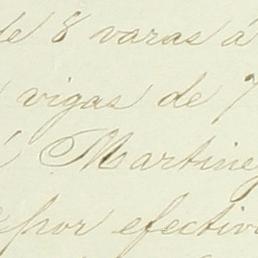 de 8 varas á
vigas de 7
á Martine
por efectiv